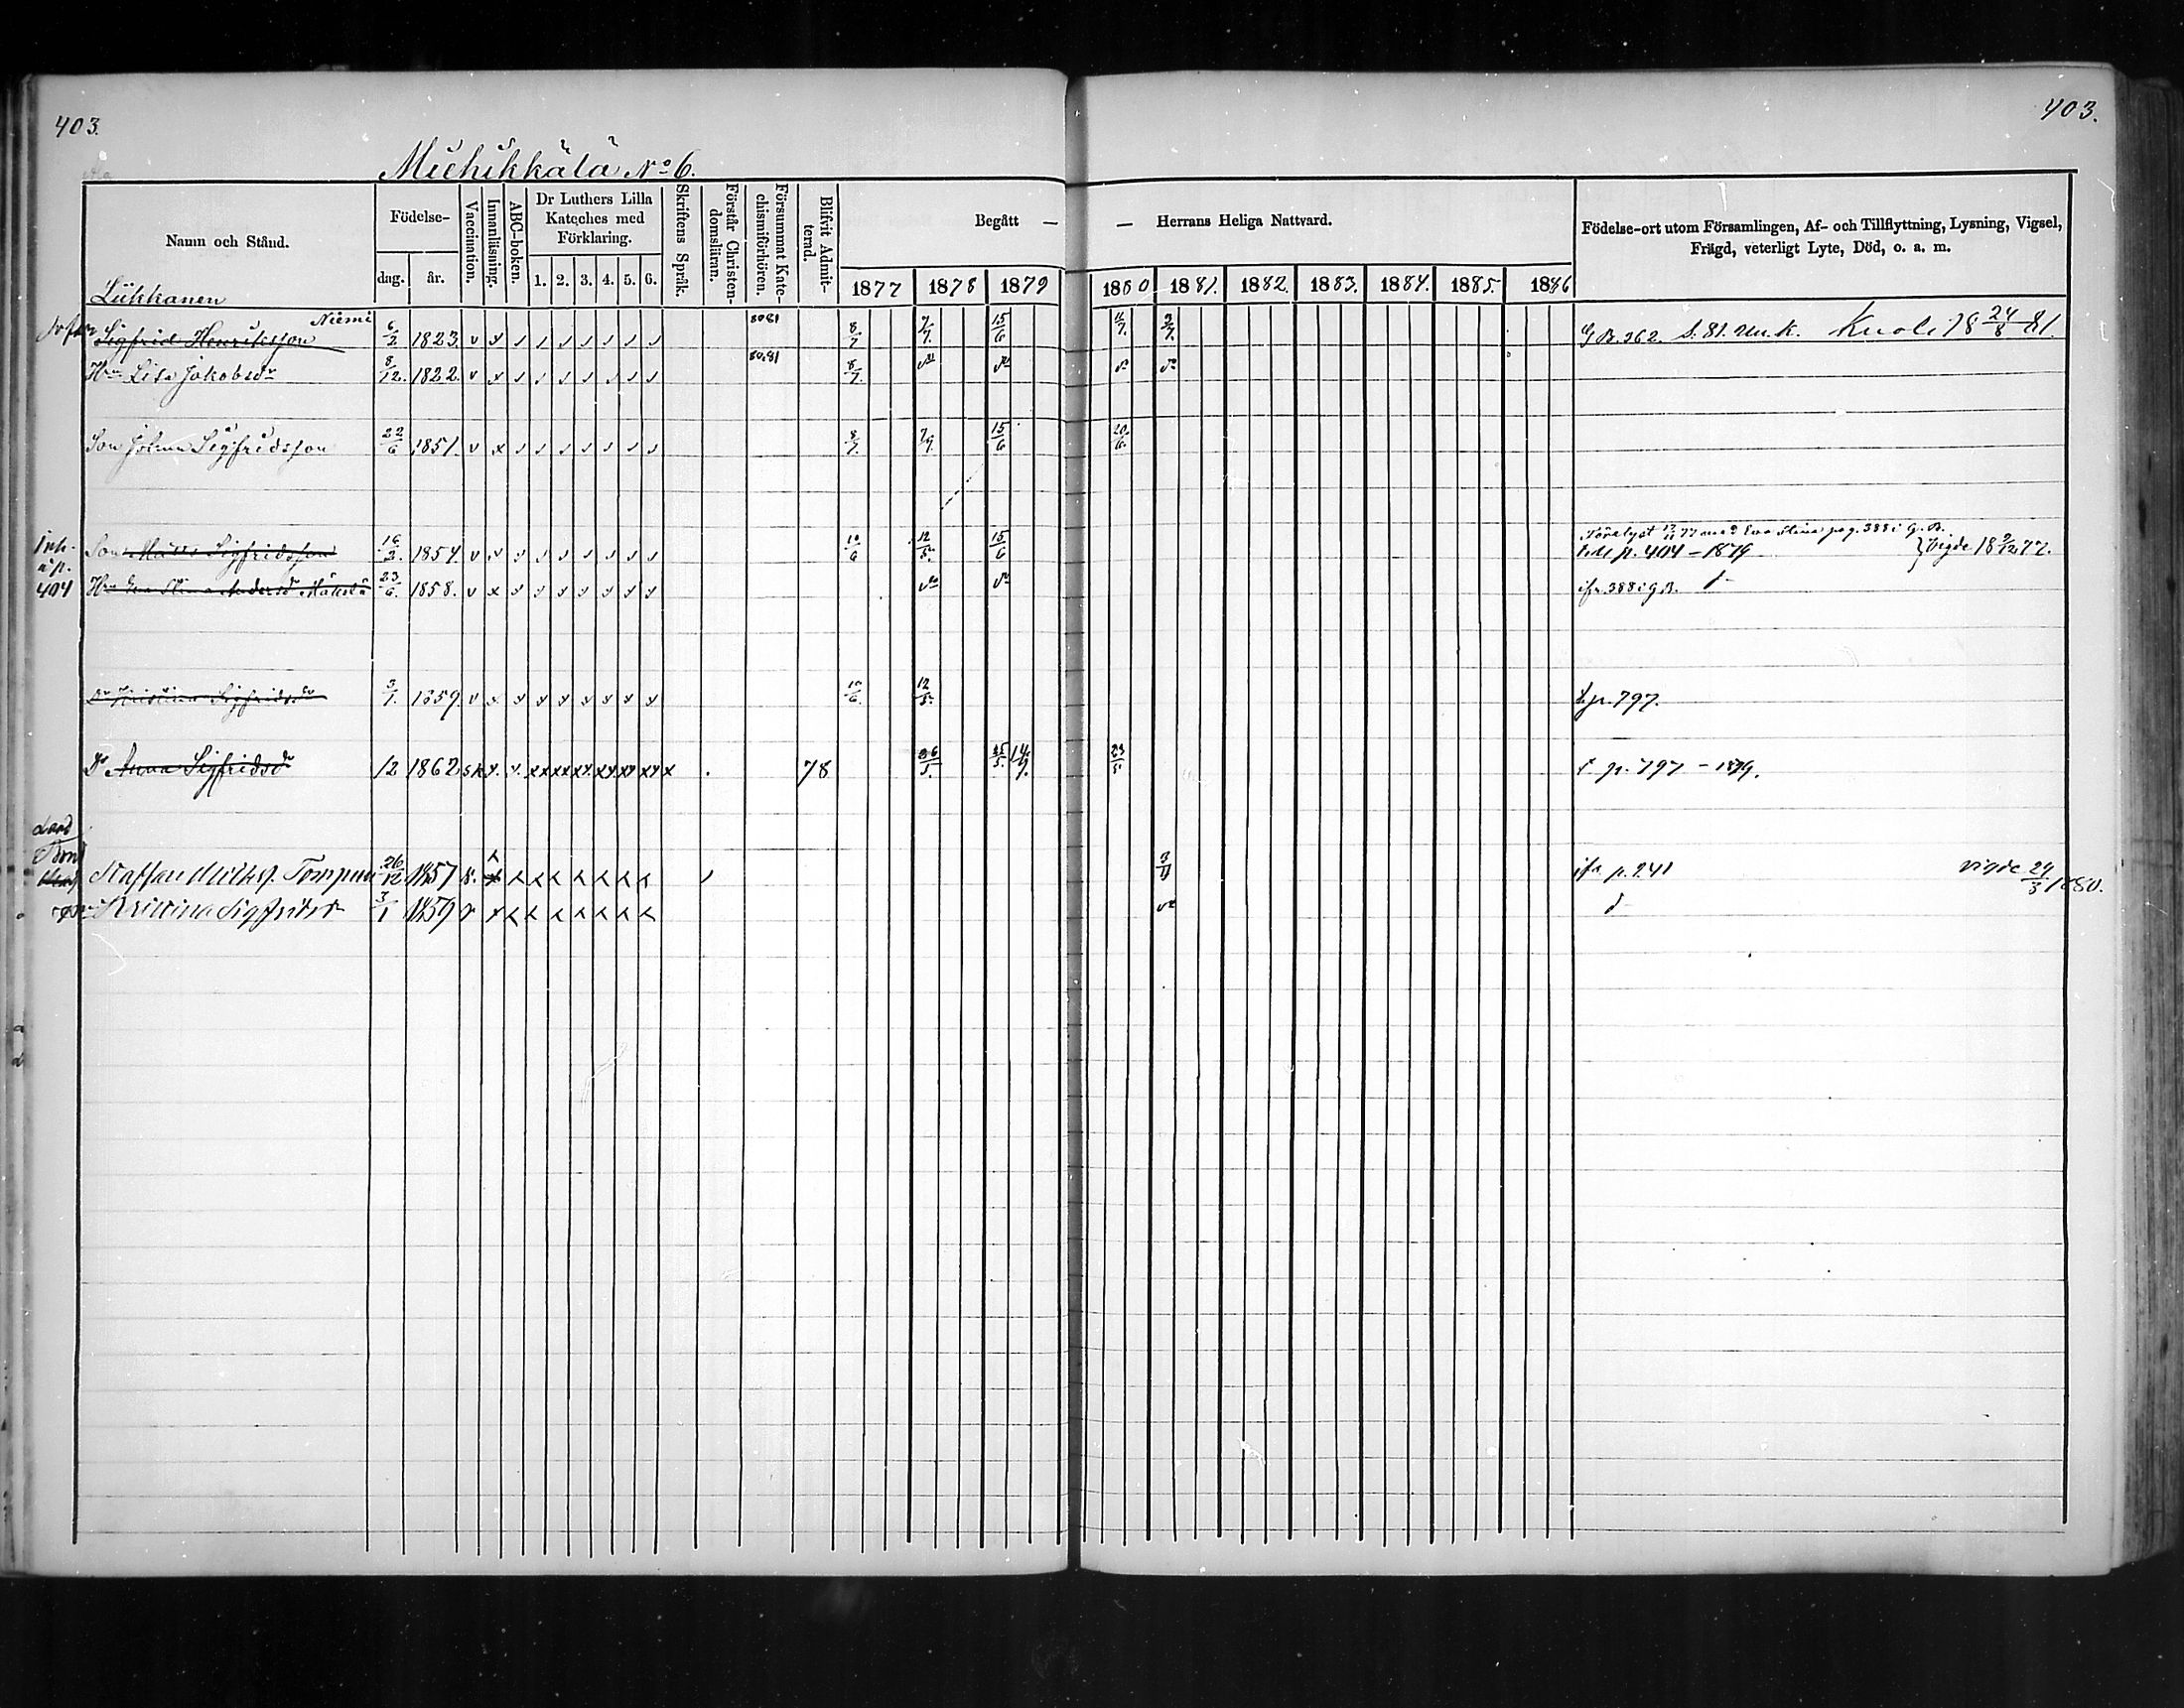 403.
403.
Miehikkälä No 6.
Namn och Stånd.
Födelse-
dag.
år.
Vaccination.
Innanläsning.
ABC-boken.
Dr Luthers Lilla
Kateches med
Förklaring.
1. 2. 3. 4. 5. 6.
Skriftens Språk.
Förstår Christen-
domsläran.
Försummat Kate-
chismiförhören.
Blifvit Admit-
terad.
Begått — — Herrans Heliga Nattvard.
1877 1878 1879 1880 1881. 1882. 1883. 1884. 1885. 1886
Födelse-ort utom Församlingen, Af- och Tillflyttning, Lysning, Vigsel,
Frägd, veterligt Lyte, Död, o. a. m.
Liikkanen
Niemi
Sigfrid Henriksson 6/2 1823. 80 81 8/7 7/7. 15/6 2/7. G.B. 362. Kuoli 18 24/8 81.
Hu Lisa Jakobsdr 8/12. 1822. 80.81 8/7.
Son Johan Sigfridsson 22/6 1851. 8/7. 7/7. 15/6 20/6.
Inh.
å p.
404
Son Matts Sigfridsson 16/2. 1854. 10/6 12/5. 15/6 Förelyst 77 med Eva Stina pag. 388 i G.B.
till p. 404 – 1879 Vigde 18 9/12 77.
Hu Eva Stina Andersdr Mäkelä 23/6. 1858. ifr. 388 i G.B.
Dr Kristina Sigfridsdr 3/1. 1859. 10/6. 12/5. t. p. 797.
Dr Anna Sigfridsdr 12 1862. 78 26/5. 25/5. 14/9. 23/5 t. p. 797 – 1879.
Staffan Tompuri 26/12 1857 ifr p. 241 vigde 29/3 1880.
Kristina Sigfridsdr 3/1 1859